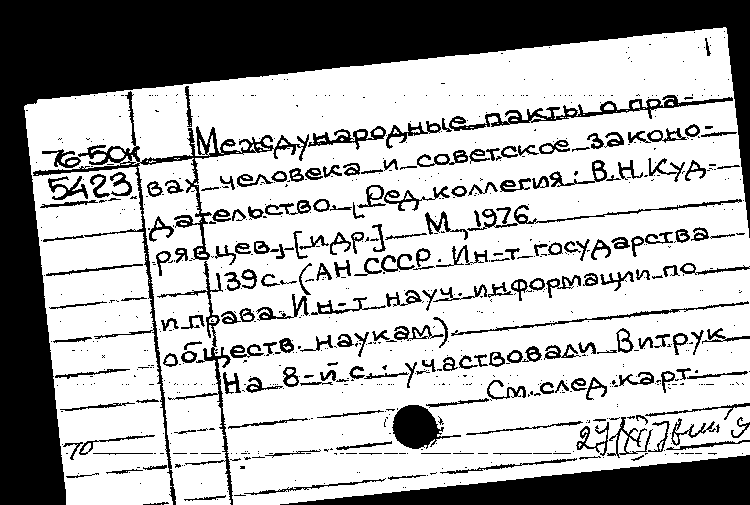 1
76-50к Международные пакты о пра-
5423 вах человека и советское законо-
дательство. [Ред. коллегия: В.Н. Куд-
рявцев, [и др.] М., 1976.
139 с. (АН СССР. Ин-т государства
и права. Ин-т науч. информации по
обществ. наукам).
На 8-й с.: участвовали Витрук
См. след. карт.
70